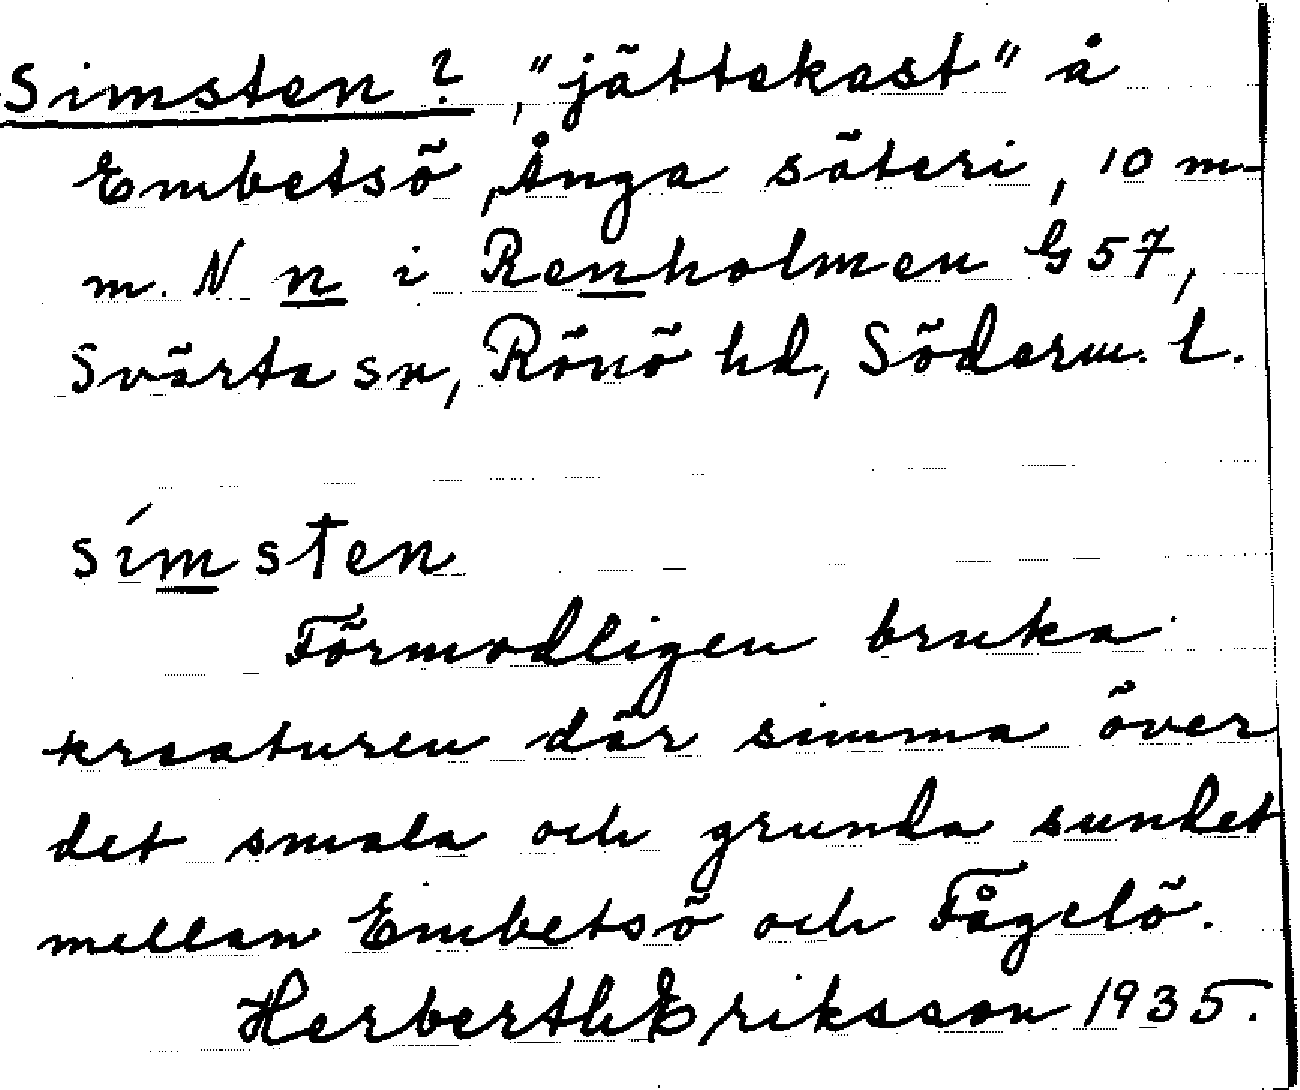 Simsten?, "jättekast" å
Embetsö, Ånga säteri, 10 m
m. N n i Renholmen G 57,
Svärta sn, Rönö hd, Söderm. l.
símsten
Förmodligen bruka
kreaturen där simma över
det smala och grunda sundet
mellan Embetsö och Fågelö.
Herberth Eriksson 1935.